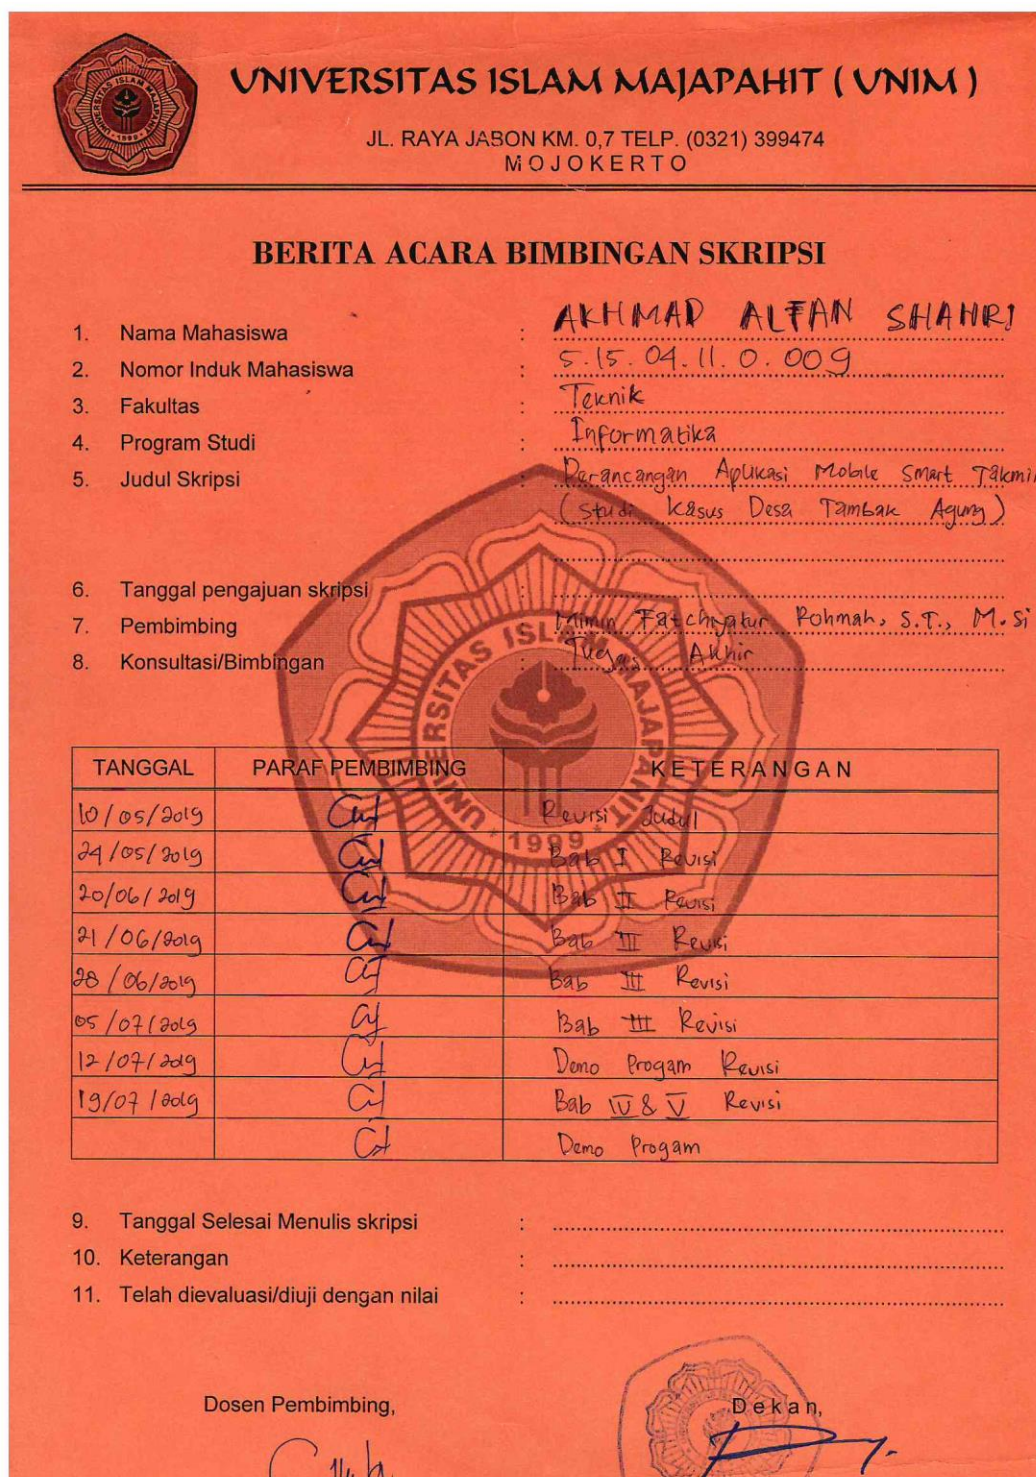 UNIVERSITAS ISLAM MAJAPAHIT ( UNIM )
JL. RAYA JABON KM. 0,7 TELP. (0321) 399474
MOJOKERTO
BERITA ACARA BIMBINGAN SKRIPSI
1. Nama Mahasiswa : AKHMAD ALFAN SHAHRI
2. Nomor Induk Mahasiswa : 5.15.04.11.0.009
3. Fakultas : Teknik
4. Program Studi : Informatika
5. Judul Skripsi : Perancangan Aplikasi Mobile Smart Takmir
(Studi Kasus Desa Tambak Agung)
6. Tanggal pengajuan skripsi :
7. Pembimbing : Mimin Fatchiyatur Rohmah, S.T., M.Si
8. Konsultasi/Bimbingan : Tugas Akhir
UNIVERSITAS ISLAM MAJAPAHIT * 1999 *
TANGGAL PARAF PEMBIMBING KETERANGAN
10/05/2019 Revisi Judul
24/05/2019 Bab I Revisi
20/06/2019 Bab II Revisi
21/06/2019 Bab III Revisi
28/06/2019 Bab III Revisi
05/07/2019 Bab III Revisi
12/07/2019 Demo Progam Revisi
19/07/2019 Bab IV & V Revisi
Demo Progam
9. Tanggal Selesai Menulis skripsi :
10. Keterangan :
11. Telah dievaluasi/diuji dengan nilai :
Dosen Pembimbing, Dekan,